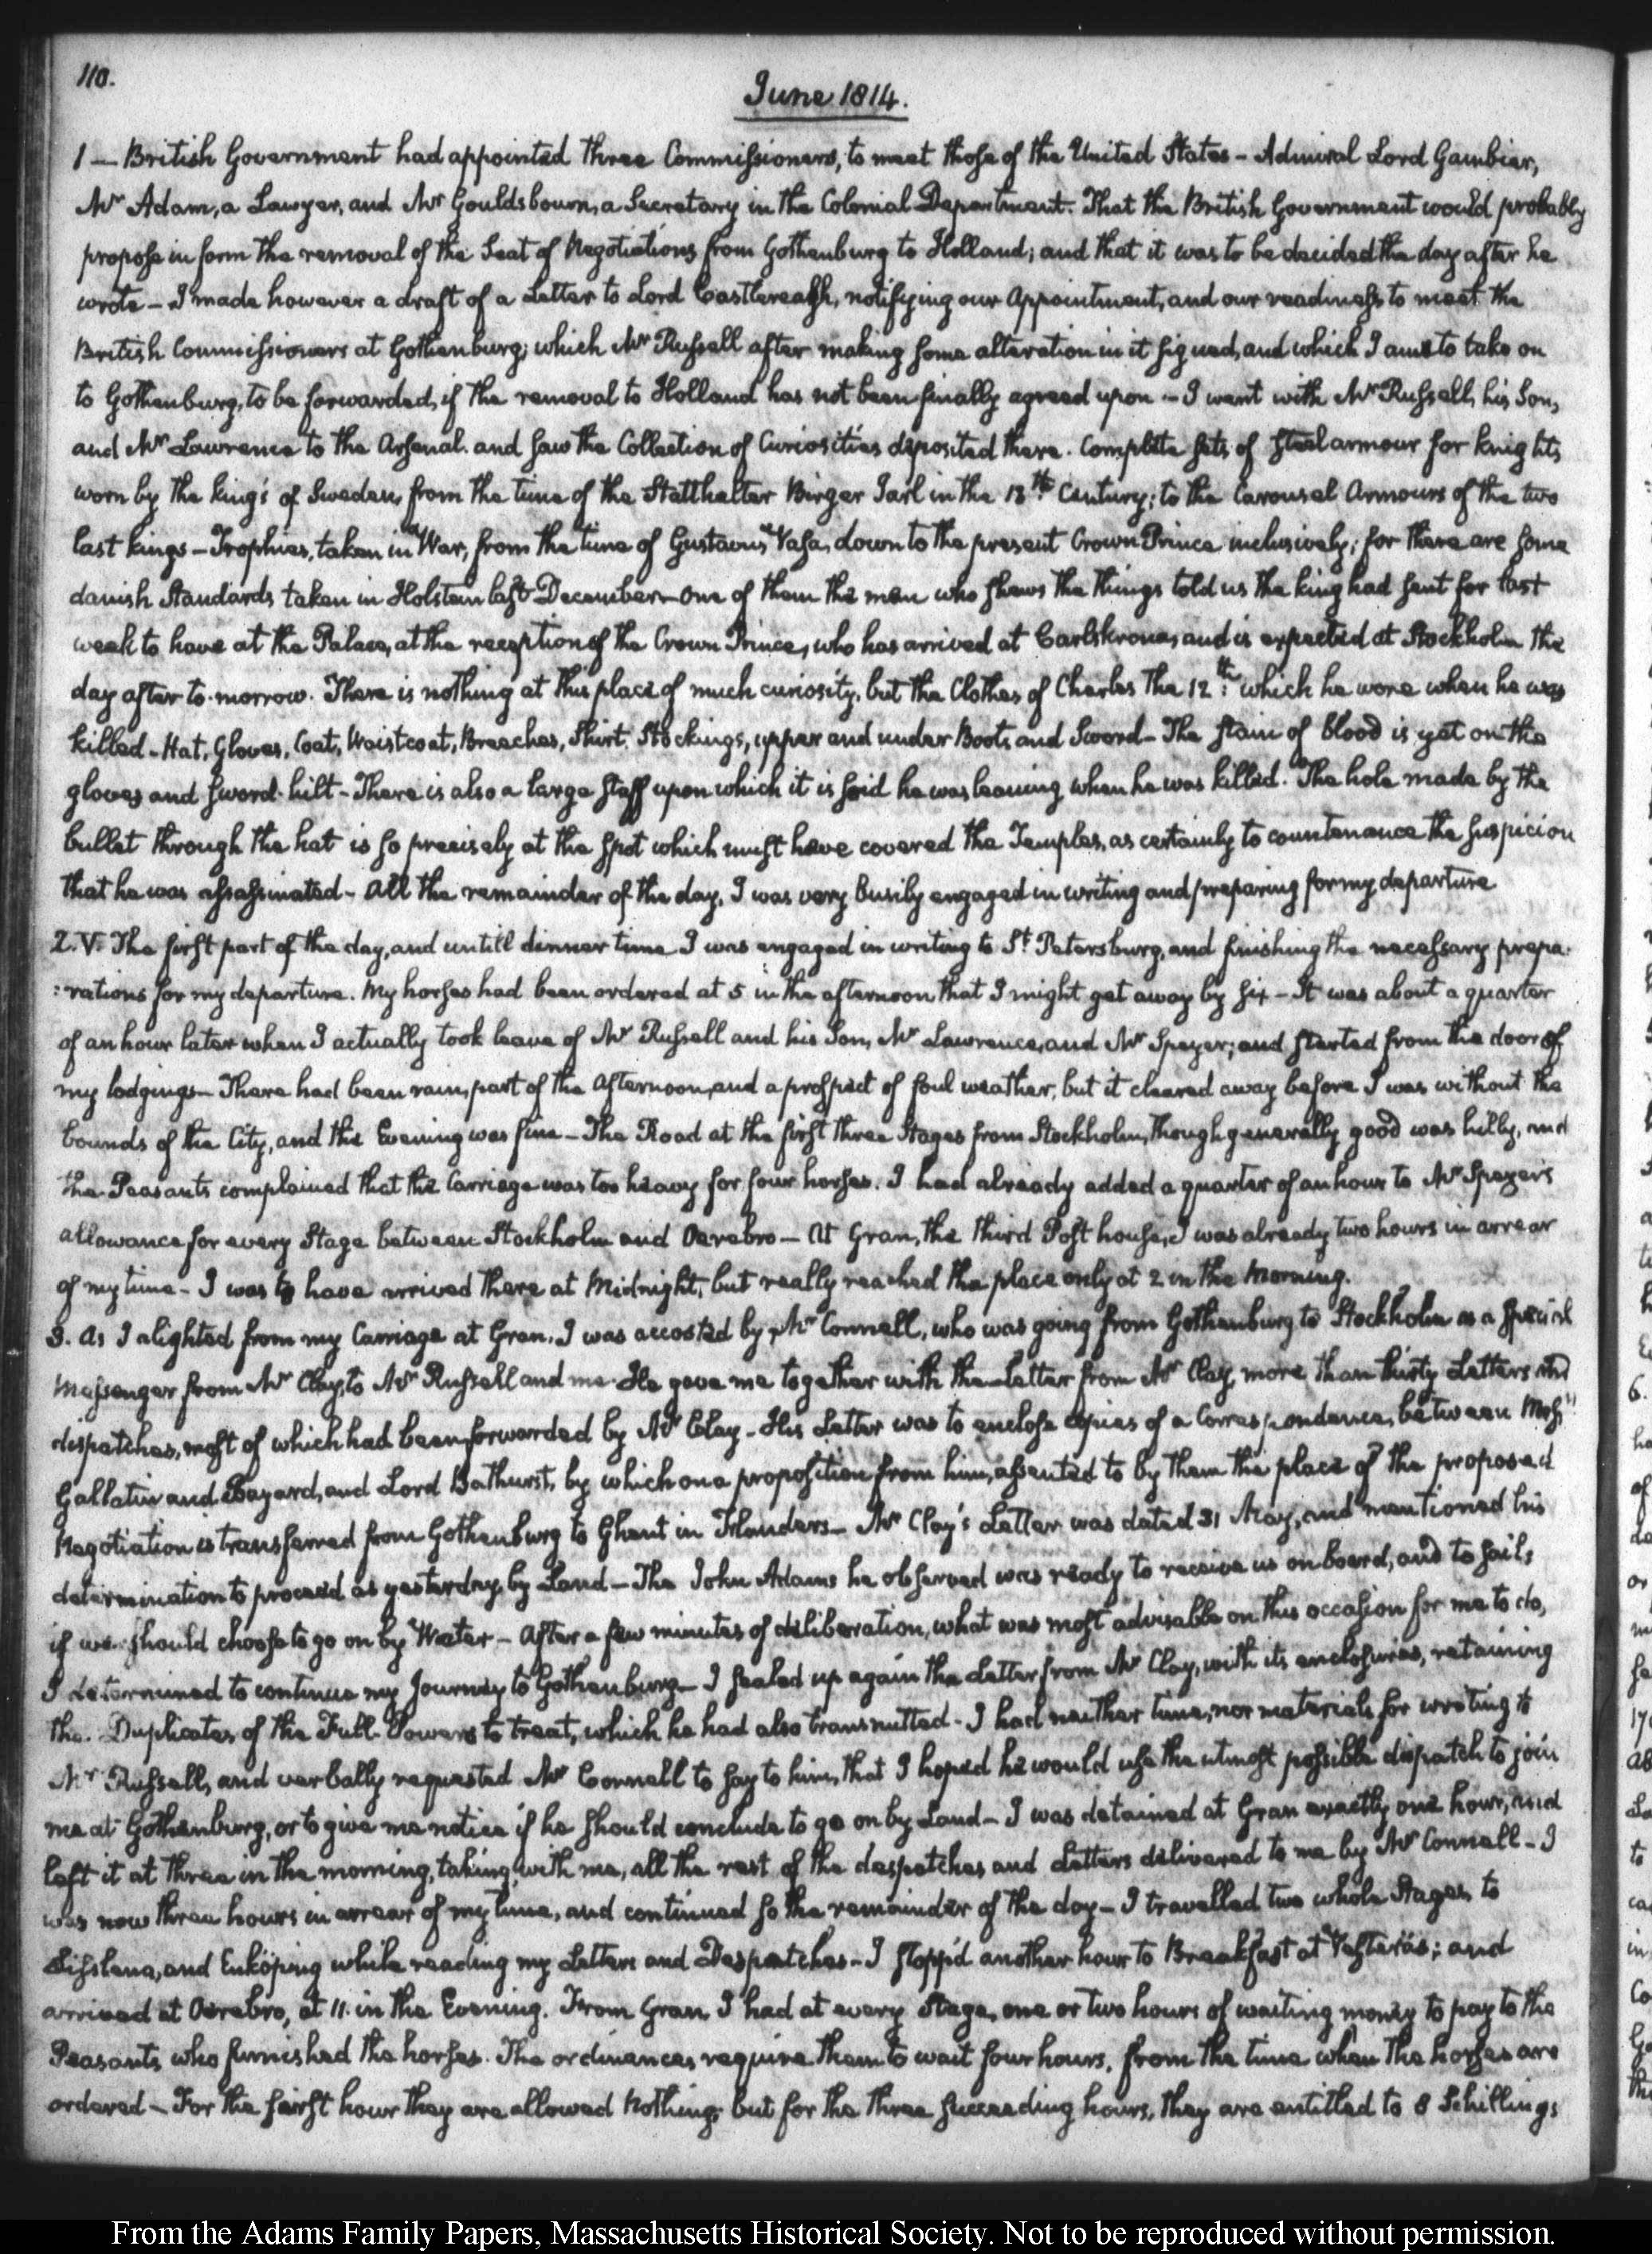 110.
June 1814.
1 — British Government had appointed three Commissioners, to meet those of the United States – Admiral Lord Gambier,
Mr Adam, a Lawyer, and Mr Gouldsbourn, a Secretary in the Colonial Department. That the British Government would probably
propose in form the removal of the Seat of Negotiations from Gothenburg to Holland; and that it was to be decided the day after he
wrote – I made however a draft of a Letter to Lord Castlereagh, notifying our Appointment, and our readiness to meet the
British Commissioners at Gothenburg; which Mr Russell after making some alteration in it signed, and which I am to take on
to Gothenburg, to be forwarded, if the removal to Holland has not been finally agreed upon – I went with Mr Russell, his Son,
and Mr Lawrence to the Arsenal. and saw the Collection of Curiosities deposited there. Complete sets of steel armour for knights
worn by the king's of Sweden, from the time of the Statthalter Birger Jarl in the 13th Century; to the Carousel Armours of the two
last kings – Trophies, taken in War, from the time of Gustavus Vasa, down to the present Crown Prince inclusively; for there are some
danish Standards taken in Holstein last December – one of them the man who shews the things told us the king had sent for last
week to have at the Palace, at the reception of the Crown Prince, who has arrived at Carlskrona, and is expected at Stockholm the
day after to-morrow. There is nothing at this place of much curiosity, but the Clothes of Charles the 12th: which he wore when he was
killed – Hat, Gloves, Coat, Waistcoat, Breeches, Shirt, Stockings, upper and under Boots and Sword – The stain of blood is yet on the
gloves and sword-hilt – There is also a large staff upon which it is said he was leaning when he was killed. The hole made by the
bullet through the hat is so precisely at the spot which must have covered the Temples, as certainly to countenance the suspicion
that he was assassinated – All the remainder of the day, I was very busily engaged in writing and preparing for my departure
2. V. The first part of the day, and untill dinner time I was engaged in writing to St Petersburg, and finishing the necessary prepa-
:rations for my departure. My horses had been ordered at 5 in the afternoon that I might get away by six – It was about a quarter
of an hour later when I actually took leave of Mr Russell and his Son, Mr Lawrence, and Mr Speyer; and started from the door of
my lodgings – There had been rain, part of the Afternoon, and a prospect of foul weather, but it cleared away before I was without the
bounds of the City, and the Evening was fine – The Road at the first three Stages from Stockholm, though generally good was hilly, and
the Peasants complained that the Carriage was too heavy for four horses. I had already added a quarter of an hour to Mr Speyer's
allowance for every Stage between Stockholm and Oerebro – At Gran, the third Post house, I was already two hours in arrear
of my time – I was to have arrived there at Midnight, but really reached the place only at 2 in the Morning.
3. As I alighted from my Carriage at Gran, I was accosted by Mr Connell, who was going from Gothenburg to Stockholm as a special
Messenger from Mr Clay, to Mr Russell and me. He gave me together with the Letter from Mr Clay, more than thirty Letters and
dispatches, most of which had been forwarded by Mr Clay – His Letter was to enclose copies of a Correspondence, between Messrs
Gallatin and Bayard, and Lord Bathurst, by which on a proposition from him, assented to by them the place of the proposed
Negotiation is transferred from Gothenburg to Ghent in Flanders – Mr Clay's Letter was dated 31 May, and mentioned his
determination to proceed as yesterday, by Land – The John Adams he observed was ready to receive us on board, and to sail,
if we should choose to go on by Water – After a few minutes of deliberation, what was most advisable on this occasion for me to do,
I determined to continue my Journey to Gothenburg – I sealed up again the Letter from Mr Clay, with its enclosures, retaining
the Duplicates of the Full-Powers to treat, which he had also transmitted – I had neither time, nor materials for writing to
Mr Russell, and verbally requested Mr Connell to say to him, that I hoped he would use the utmost possible dispatch to join
me at Gothenburg, or to give me notice if he should conclude to go on by Land – I was detained at Gran exactly one hour, and
left it at three in the morning, taking with me, all the rest of the despatches and Letters delivered to me by Mr Connell – I
was now three hours in arrear of my time, and continued so the remainder of the day – I travelled two whole Stages to
Lislena, and Enköping while reading my Letters and Despatches – I stopp'd another hour to Breakfast at Vesterås; and
arrived at Oerebro, at 11. in the Evening. From Gran I had at every Stage, one or two hours of waiting money to pay to the
Peasants who furnished the horses. The ordinances require them to wait four hours, from the time when the horses are
ordered – For the first hour they are allowed Nothing; but for the three succeeding hours, they are entitled to 8 Schillings
From the Adams Family Papers, Massachusetts Historical Society. Not to be reproduced without permission.